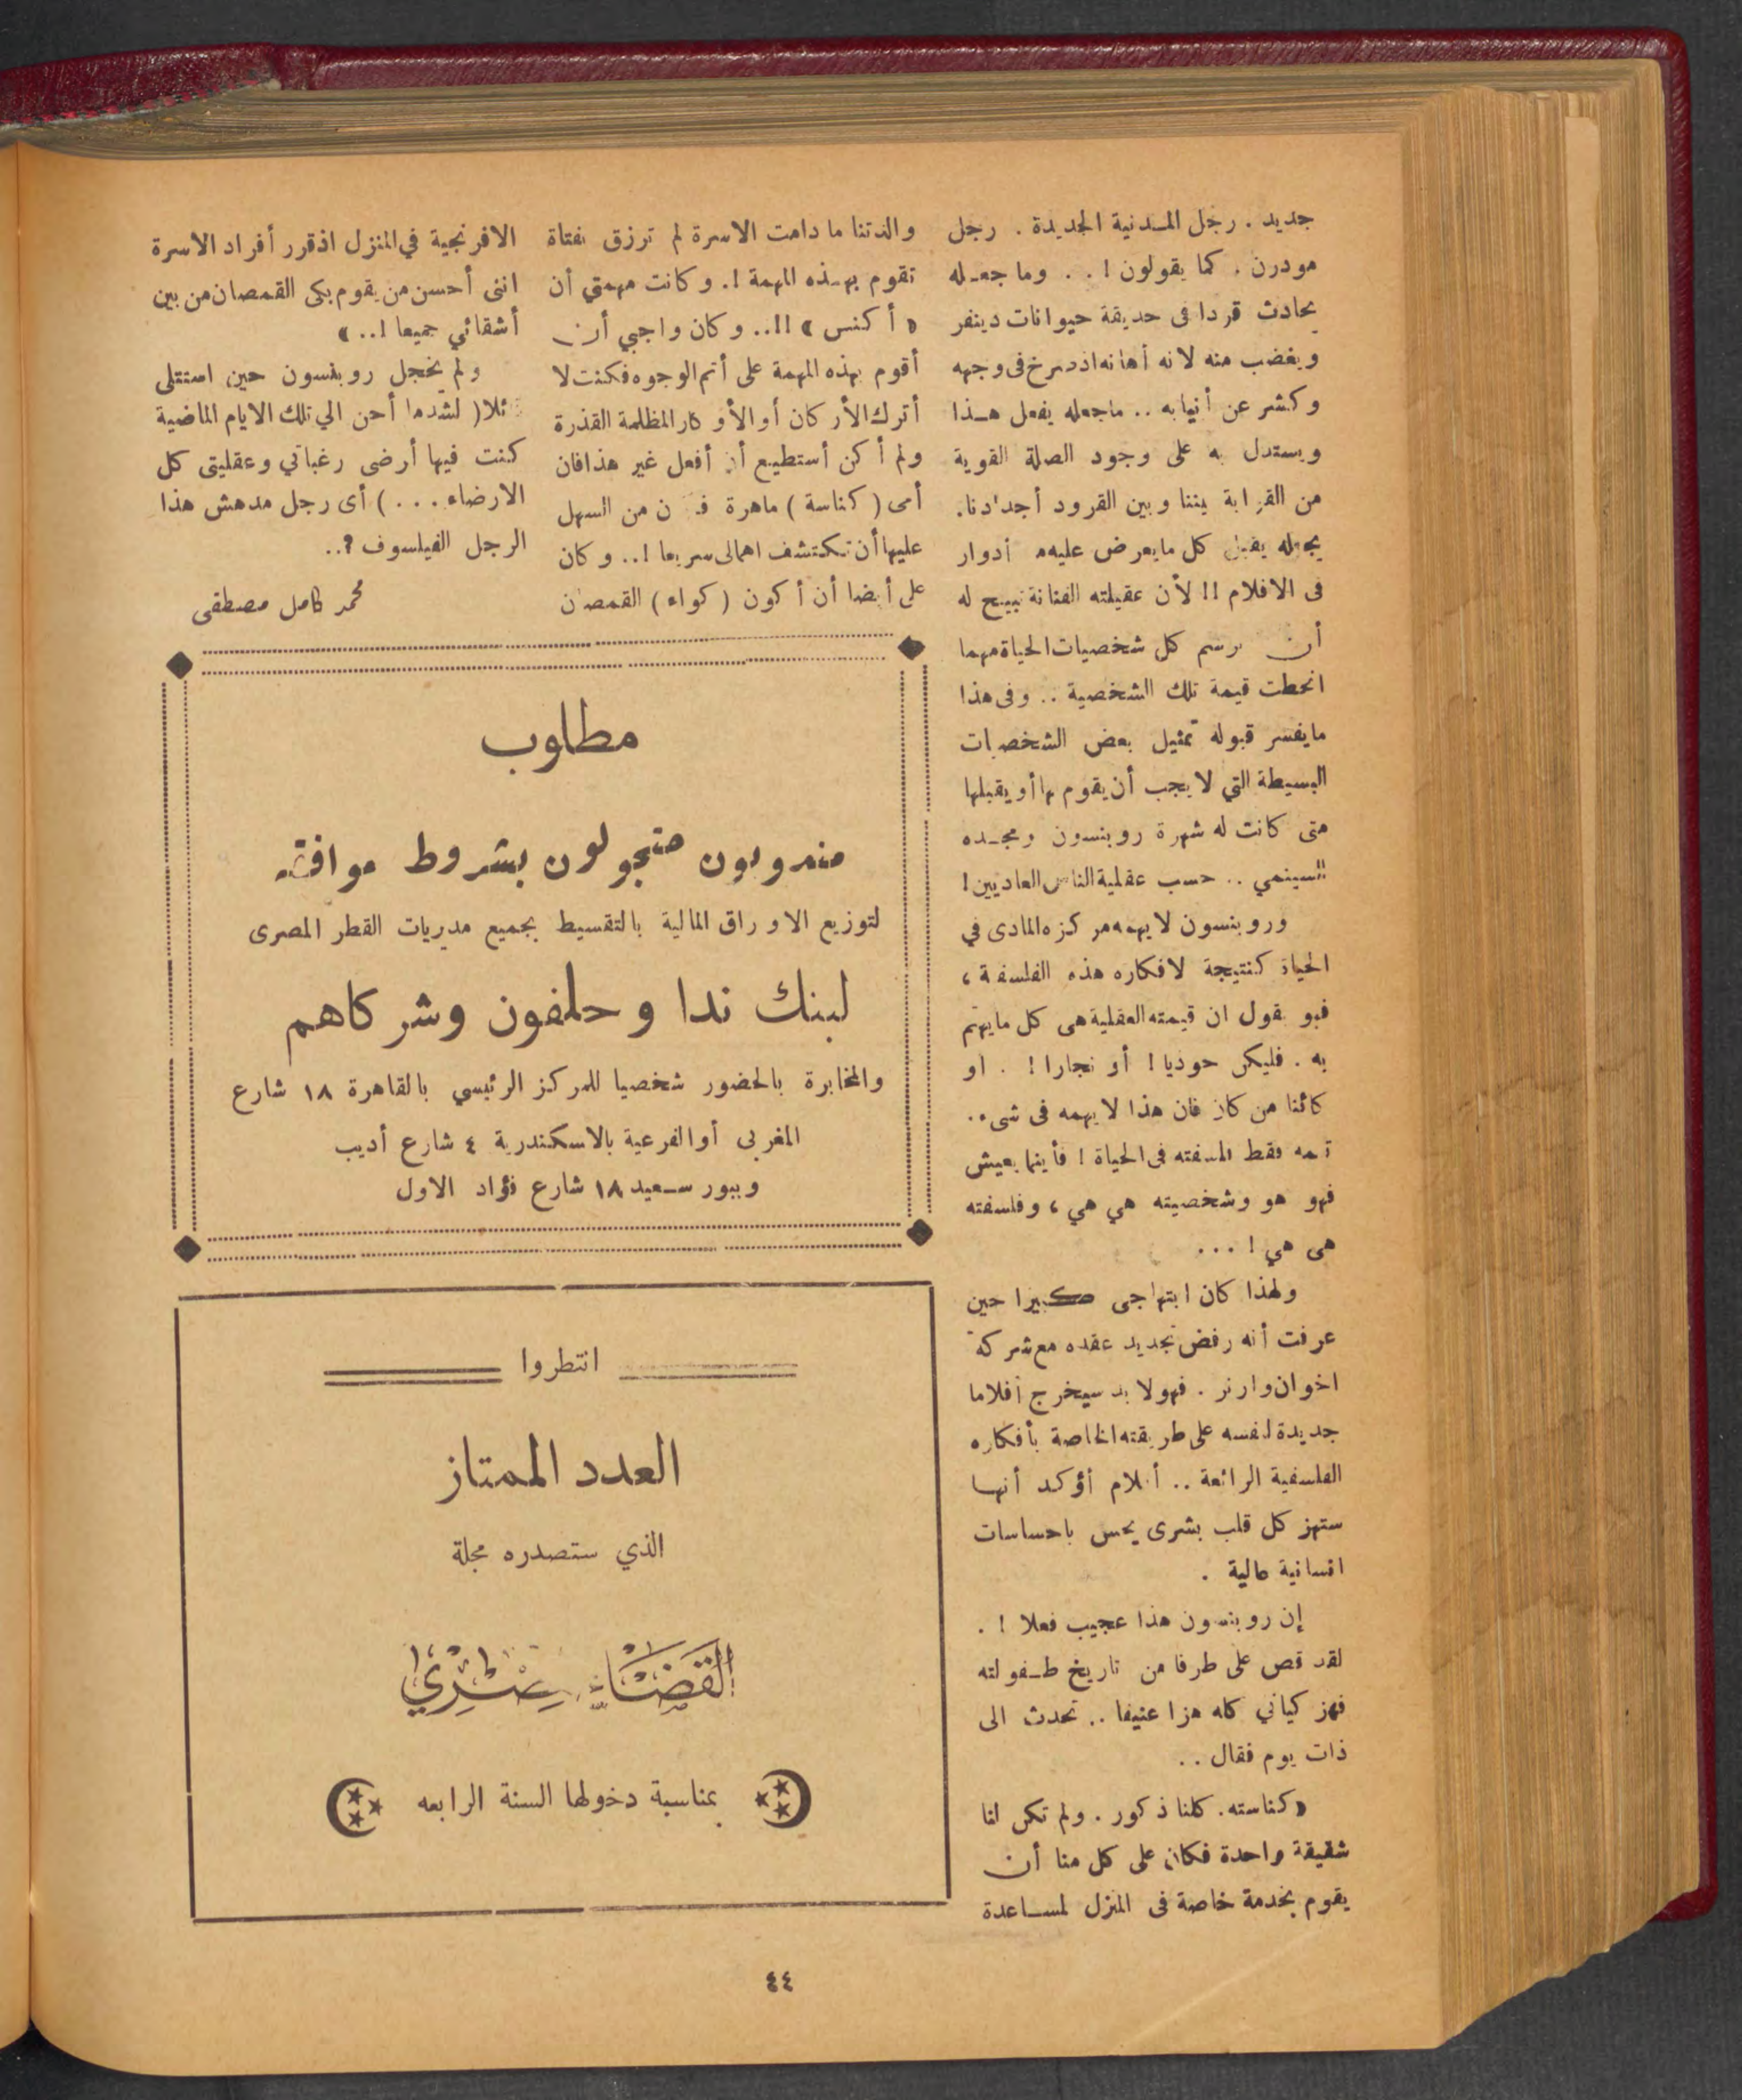 جديد . رجل المدنية الجديدة . رجل
مودرن . كما يقولون ! . . وما جعله
يحادث قردا فى حديقة حيوانات دينفر
ويغضب منه لانه أهانه اذ صرخ فى وجهه
وكشر عن أنيابه .. ماجعله يفعل هذا
ويستدل به على وجود الصلة القوية
من القرابة بيننا وبين القرود أجدادنا .
يجعله يقبل كل مايعرض عليه من أدوار
فى الافلام !! لأن عقيلته الفنانة تبيح له
أن يرسم كل شخصيات الحياة مهما
انحطت قيمة تلك الشخصية .. وفى هذا
مايفسر قبوله تمثيل بعض الشخصيات
البسيطة التي لا يجب أن يقوم بها أو يقبلها
متى كانت له شهرة روبنسون ومجده
السينمي .. حسب عقلية الناس العاديين !
وروبنسون لا يهمه مركزه المادى في
الحياة كنتيجة لافكاره هذه الفلسفة ،
فهو يقول ان قيمته العقلية هى كل مايهتم
به . فليكن حوذيا ! أو نجارا ! . او
كائنا من كان فان هذا لا يهمه فى شىء .
تهمه فقط فلسفته فى الحياة ! فأينما يعيش
فهو هو وشخصيته هي هي ، وفلسفته
هى هي ! . . .
ولهذا كان ابتهاجى كبيرا حين
عرفت أنه رفض تجديد عقده مع شركة
اخوان وارنر . فهو لا بد سيخرج أفلاما
جديدة لنفسه على طريقته الخاصة بأفكاره
الفلسفية الرائعة .. أفلام أؤكد أنها
ستهز كل قلب بشرى يحس باحساسات
انسانية عالية .
إن روبنسون هذا عجيب فعلا ! .
لقد قص على طرفا من تاريخ طفولته
فهز كياني كله هزا عنيفا .. تحدث الى
ذات يوم فقال ..
« كنا سته . كلنا ذكور . ولم تكن لنا
شقيقة واحدة فكان على كل منا أن
يقوم بخدمة خاصة فى المنزل لمساعدة
والدتنا ما دامت الاسرة لم ترزق بفتاة
تقوم بهذه المهمة !. وكانت مهمتي أن
« أكنس » !!.. وكان واجبي أن
أقوم بهذه المهمة على أتم الوجوه فكنت لا
أترك الأركان أو الأوكار المظلمة القذرة
ولم أكن أستطيع أن أفعل غير هذا فان
أمى ( كناسة ) ماهرة فكان من السهل
عليها أن تكتشف اهمالى سريعا !.. وكان
على أيضا أن أكون ( كواء ) القمصان
الافرنجية في المنزل اذ قرر أفراد الاسرة
اننى أحسن من يقوم بكى القمصان من بين
أشقائي جميعا !.. »
ولم يخجل روبنسون حين استتلى
قائلا ( لشد ما أحن الي تلك الايام الماضية
كنت فيها أرضى رغباتي وعقليتى كل
الارضاء . . . ) أى رجل مدهش هذا
الرجل الفيلسوف ؟..
محمد كامل مصطفى
مطلوب
مندوبون متجولون بشروط موافقه
لتوزيع الاوراق المالية بالتقسيط بجميع مديريات القطر المصرى
لبنك ندا وحلفون وشركاهم
والمخابرة بالحضور شخصيا للمركز الرئيسي بالقاهرة ١٨ شارع
المغربى أو الفرعية بالاسكندرية ٤ شارع أديب
وببور سعيد ١٨ شارع فؤاد الاول
انتظروا
العدد الممتاز
الذي ستصدره مجلة
القضاء المصري
بمناسبة دخولها السنة الرابعه
٤٤